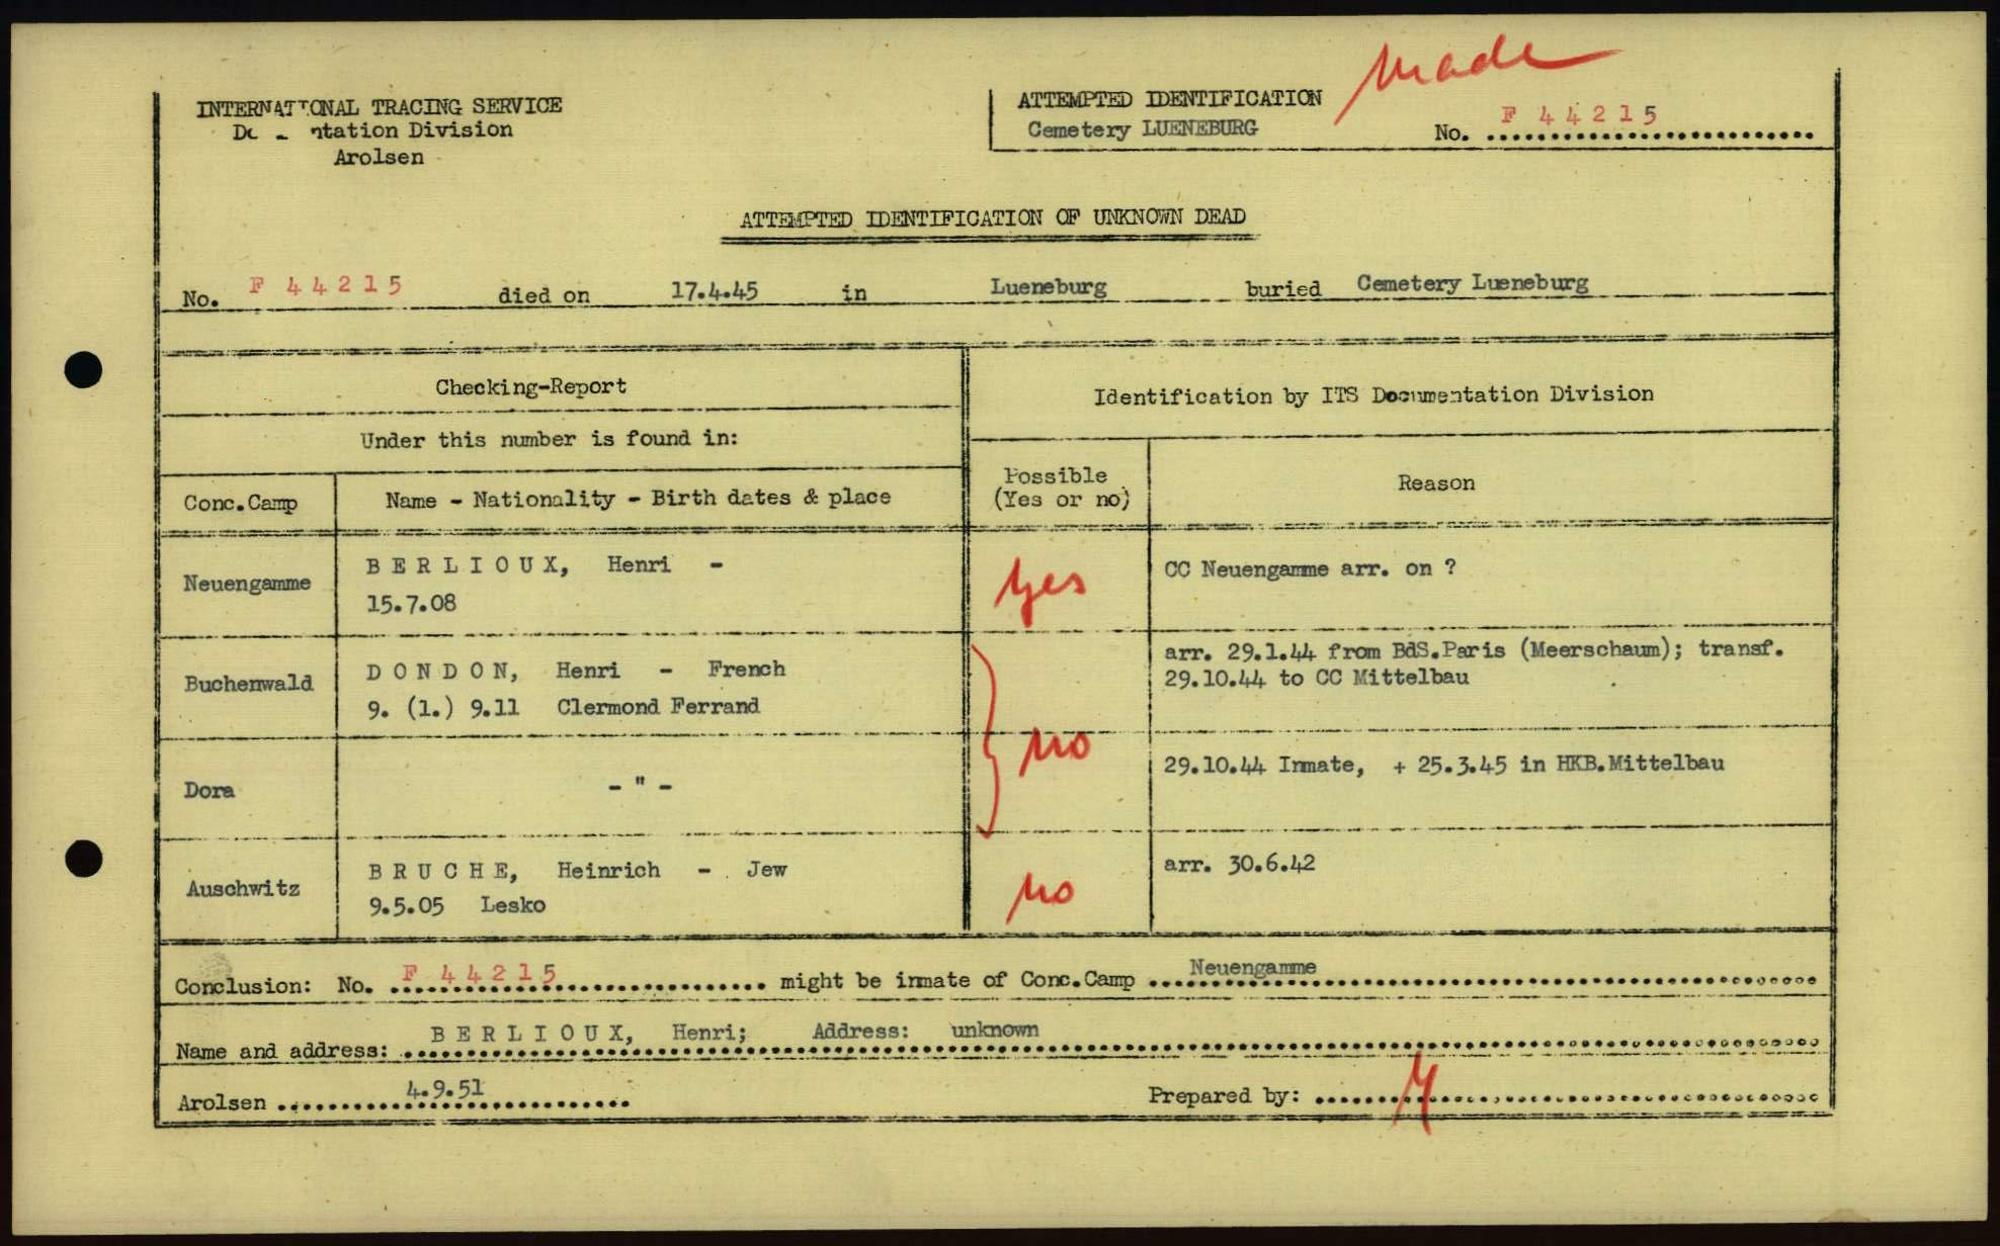 INTERNATIONAL TRACING SERVICE
Documentation Division
Arolsen
Made
ATTEMPTED IDENTIFICATION
Cemetery LUENEBURG No. F 44215
ATTEMPTED IDENTIFICATION OF UNKNOWN DEAD
No. F 44215 died on 17.4.45 in Lueneburg buried Cemetery Lueneburg
Checking-Report
Under this number is found in:
Identification by ITS Documentation Division
Conc.Camp Name - Nationality - Birth dates & place
Possible (Yes or no)
Reason
Neuengamme
B E R L I O U X, Henri -
15.7.08
yes
CC Neuengamme arr. on ?
Buchenwald
D O N D O N, Henri - French
9. (1.) 9.11 Clermond Ferrand
arr. 29.1.44 from BdS.Paris (Meerschaum); transf.
29.10.44 to CC Mittelbau
no
Dora
- " -
29.10.44 Inmate, + 25.3.45 in HKB.Mittelbau
Auschwitz
B R U C H E, Heinrich - Jew
9.5.05 Lesko
no
arr. 30.6.42
Conclusion: No. F 44215 might be inmate of Conc.Camp Neuengamme
Name and address: B E R L I O U X, Henri; Address: unknown
Arolsen 4.9.51 Prepared by: